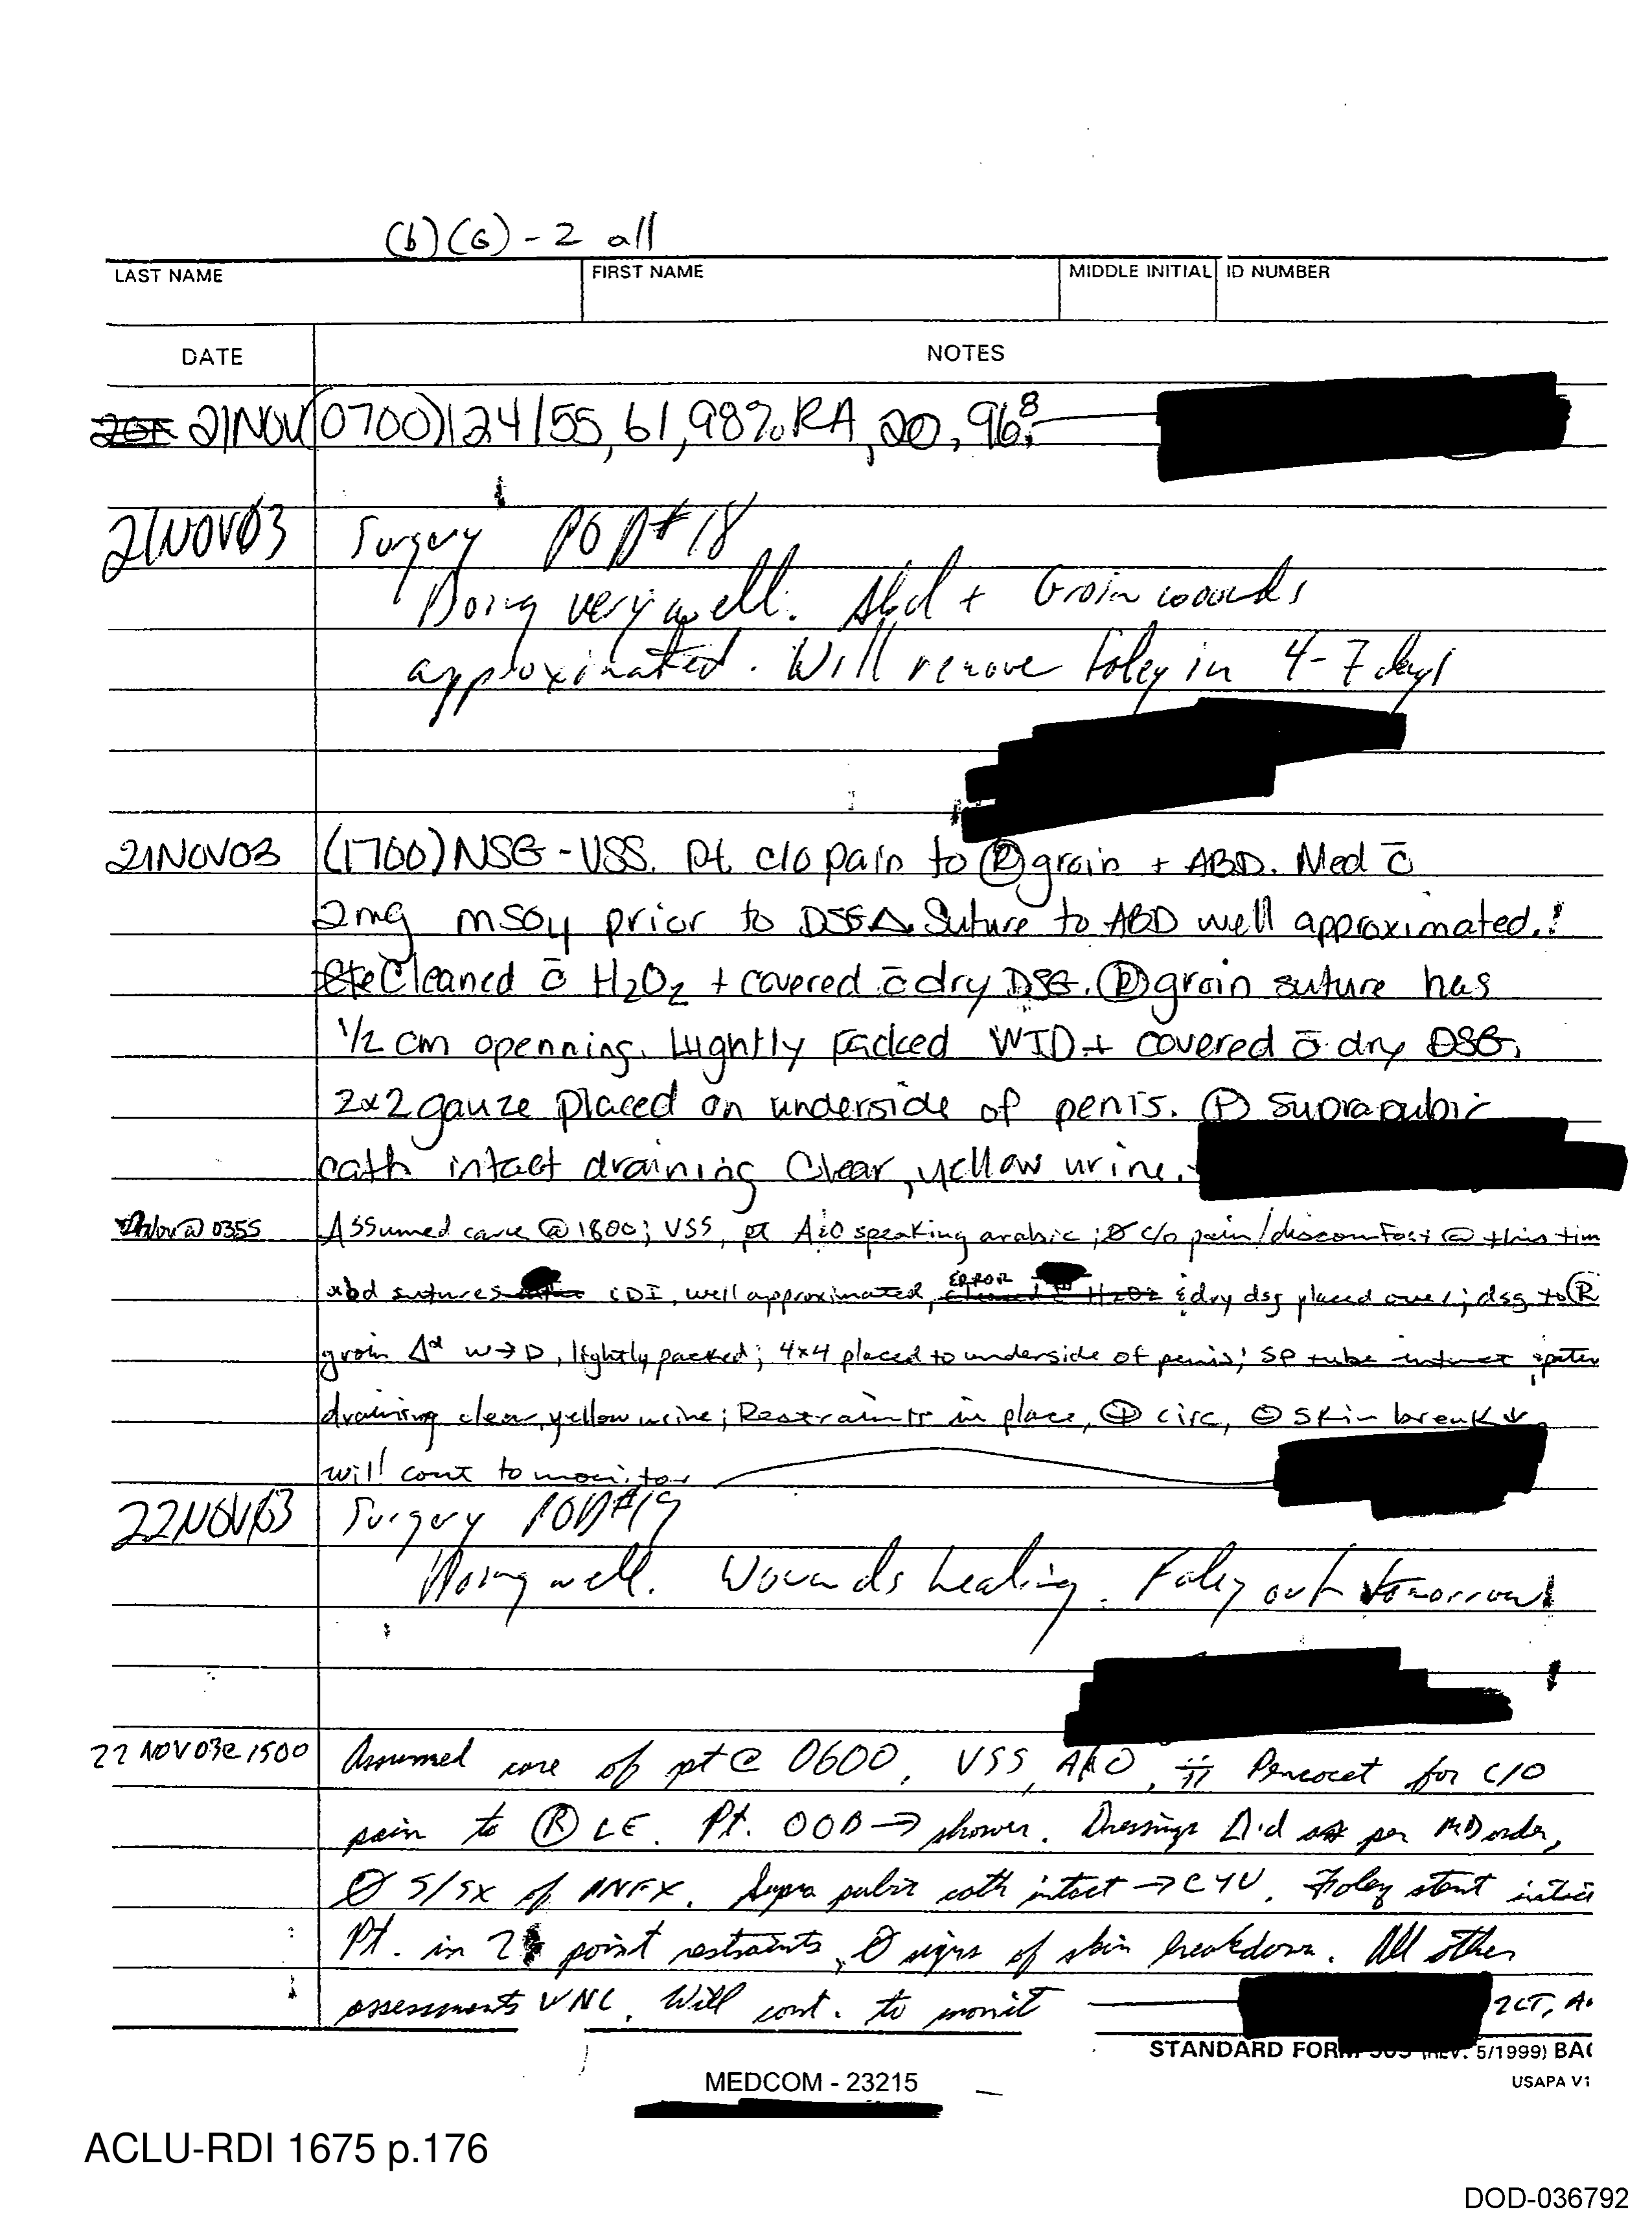 (b)(6)-2 all
LAST NAME FIRST NAME MIDDLE INITIAL ID NUMBER
DATE NOTES
21NOV (0700) 124/55, 61, 98% RA, 20, 96.8
21NOV03 Surgery POD#18
Doing very well. Abd + Groin wounds
approximated. Will remove foley in 4-7 days
21NOV03 (1700) NSG - VSS. Pt. c/o pain to Ⓡ groin + ABD. Med c̄
2mg MSO4 prior to DSG Δ. Suture to ABD well approximated.
Cleaned c̄ H2O2 + covered c̄ dry DSG. Ⓡ groin suture has
1/2 cm openning. Lightly packed WTD + covered c̄ dry DSG.
2x2 gauze placed on underside of penis. Ⓟ suprapubic
cath intact draining Clear, yellow urine.
@ 0355 Assumed care @ 1800; VSS, pt A&O speaking arabic; Ø c/o pain/discomfort @ this tim
abd sutures CDI, well approximated, ERROR H2O2 & dry dsg placed over; dsg to Ⓡ
groin Δd W→D, lightly packed; 4x4 placed to underside of penis; SP tube intact
draining clear, yellow urine; Restraints in place, ⊕ circ, ⊖ skin break↓
will cont to monitor
22NOV03 Surgery POD#19
Doing well. Wounds healing. Foley out tomorrow
22 NOV 03 @ 1500 Assumed care of pt @ 0600, VSS, A&O, ii Percocet for C/O
pain to Ⓡ LE. Pt. OOB → shower. Dressings Δ'd as per MD order,
Ø S/SX of INFX. Supra pubic cath intact → CYU. Foley stent intac
Pt. in 2 point restraints, Ø signs of skin breakdown. All other
assessments WNL. Will cont. to monit
STANDARD FORM (REV. 5/1999) BA
USAPA V1
MEDCOM - 23215
ACLU-RDI 1675 p.176
DOD-036792